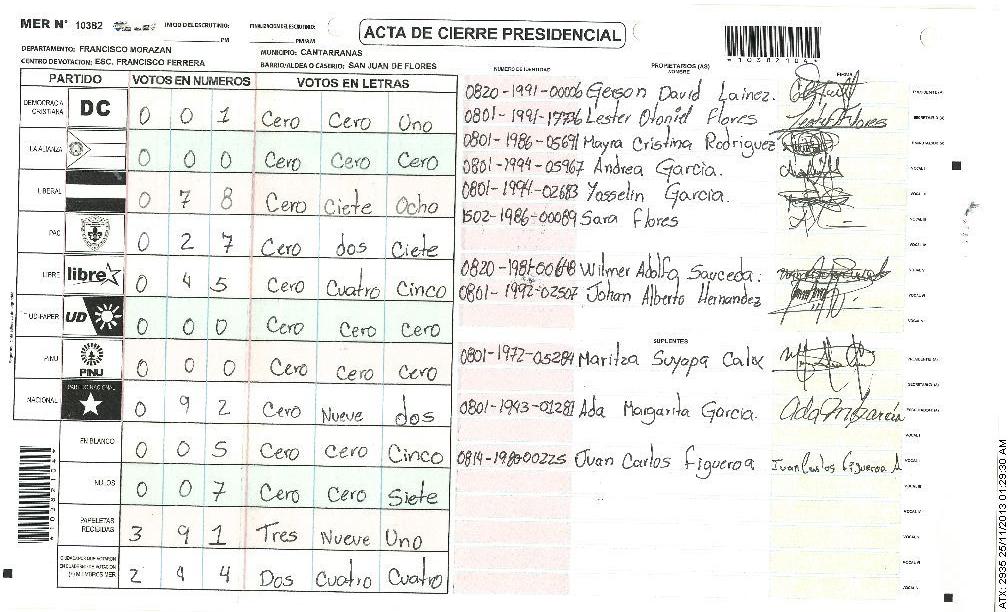 MER N° 10382 INICIO DEL ESCRUTINIO: PM FINALIZACION DEL ESCRUTINIO: PM/AM
ACTA DE CIERRE PRESIDENCIAL
*10382104*
DEPARTAMENTO: FRANCISCO MORAZAN MUNICIPIO: CANTARRANAS
CENTRO DE VOTACION: ESC. FRANCISCO FERRERA BARRIO/ALDEA O CASERIO: SAN JUAN DE FLORES
PARTIDO VOTOS EN NUMEROS VOTOS EN LETRAS
NUMERO DE IDENTIDAD PROPIETARIOS (AS) NOMBRE FIRMA
DEMOCRACIA CRISTIANA DC 0 0 1 Cero Cero Uno
LA ALIANZA 0 0 0 Cero Cero Cero
LIBERAL 0 7 8 Cero Ciete Ocho
PAC 0 2 7 Cero dos Ciete
LIBRE libre 0 4 5 Cero Cuatro Cinco
UD-FAPER UD 0 0 0 Cero Cero Cero
PINU PINU 0 0 0 Cero Cero Cero
NACIONAL PARTIDO NACIONAL 0 9 2 Cero Nueve dos
EN BLANCO 0 0 5 Cero Cero Cinco
NULOS 0 0 7 Cero Cero Siete
PAPELETAS RECIBIDAS 3 9 1 Tres Nueve Uno
2 4 4 Dos Cuatro Cuatro
0820-1991-00006 Gerson David Lainez. PRESIDENTE (A)
0801-1991-17776 Lester Otoniel Flores SECRETARIO (A)
0801-1986-05691 Mayra Cristina Rodriguez
0801-1994-05967 Andrea Garcia. VOCAL I
0801-1994-02683 Yosselin Garcia. VOCAL II
1502-1986-00089 Sara Flores VOCAL III
VOCAL IV
0820-1981-00648 Wilmer Adolfo Sauceda. VOCAL V
0801-1992-02507 Johan Alberto Hernandez VOCAL VI
SUPLENTES
0801-1972-05284 Maritza Suyapa Calix PRESIDENTE (A)
SECRETARIO (A)
0801-1943-01281 Ada Margarita Garcia.
VOCAL I
0814-1980-00225 Juan Carlos Figueroa Juan Carlos Figueroa A
VOCAL III
VOCAL IV
VOCAL V
VOCAL VI
*10382104*
ATX: 2935 25/11/2013 01:29:30 AM